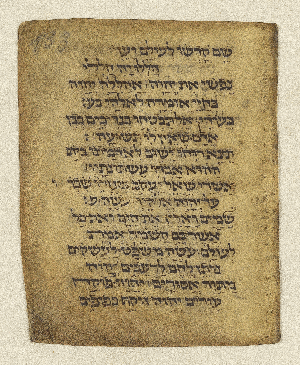 שם קדשו לעולם ועד
הללויה הללי
נפשי את יהוה אהללה יהוה
בחיי אזמרה לאלהי בעו
בעודי אל תבטחו בנדיבים בבן
אדם שאין לו תשועה
תצא רוחו ישוב לאדמתו ביום
ההוא אבדו עשתנתיו
אשרי שאל יעקב בעזרו שברו
על יהוה אלהיו עשה
שמים וארץ את הים ואת כל
אשר בם השמר אמת
לעולם עשה משפט לעשוקים
נתן לחם לרעבים יהוה
אסורים יהוה
עורים יהוה זקף כפופים